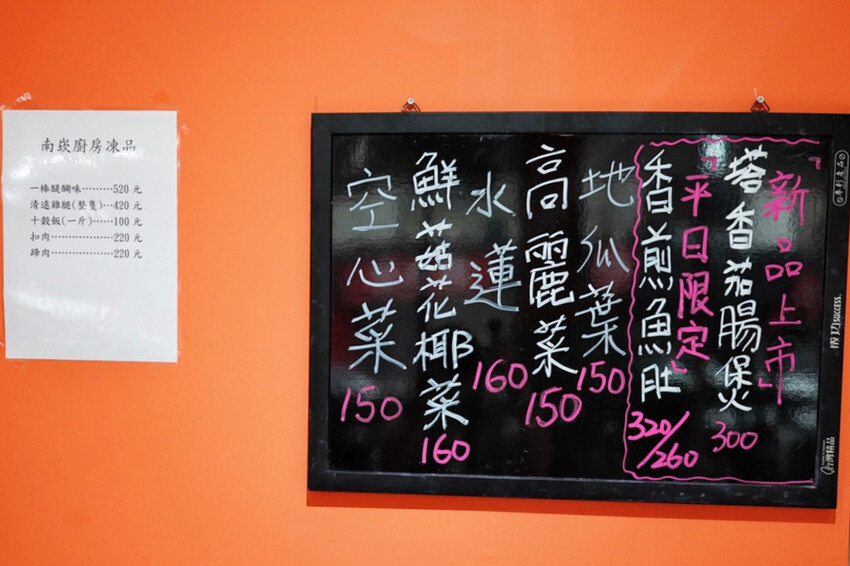 南崁廚房凍品
一棒醍醐味………520元
清遠雞腿(整隻)…420元
十穀飯(一片)……100元
扣肉………………220元
蹄肉………………220元
「新品上市」
塔香茄腸煲 300
「平日限定」
香煎魚肚 320/260
地瓜葉 150
高麗菜 150
水蓮 160
鮮菇花椰菜 160
空心菜 150
成功 SUCCESS
台灣精品